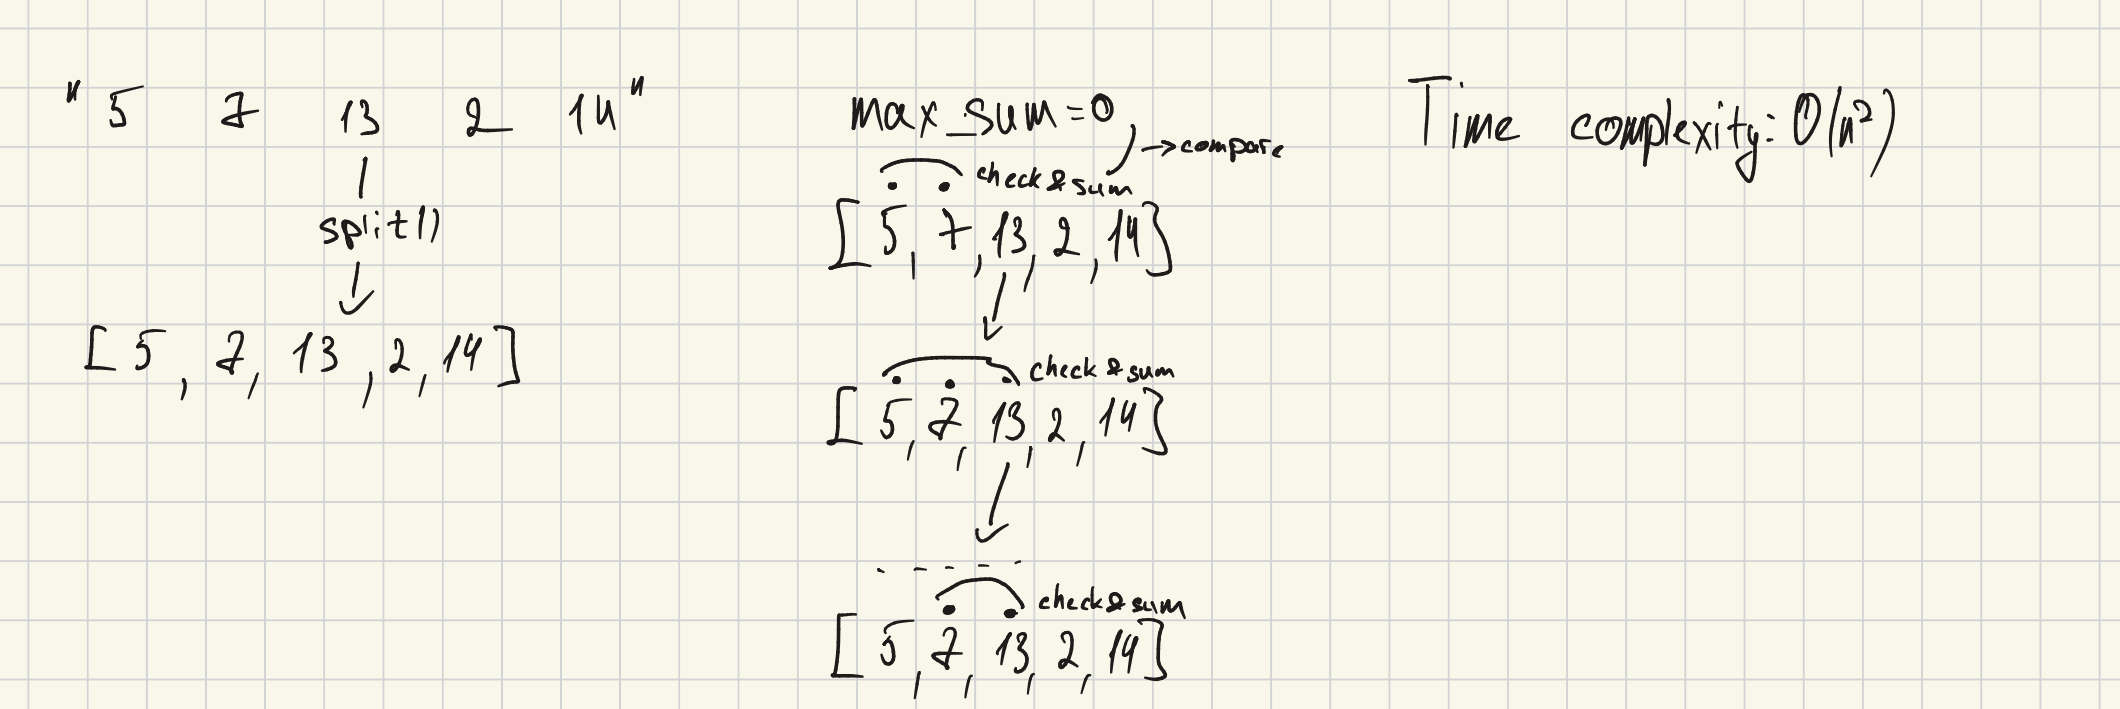 "5 7 13 2 14"
split()
[5, 7, 13, 2, 14]
max_sum=0
→compare
check & sum
[5, 7, 13, 2, 14]
check & sum
[5, 7, 13, 2, 14]
check & sum
[5, 7, 13, 2, 14]
Time complexity: O(n²)